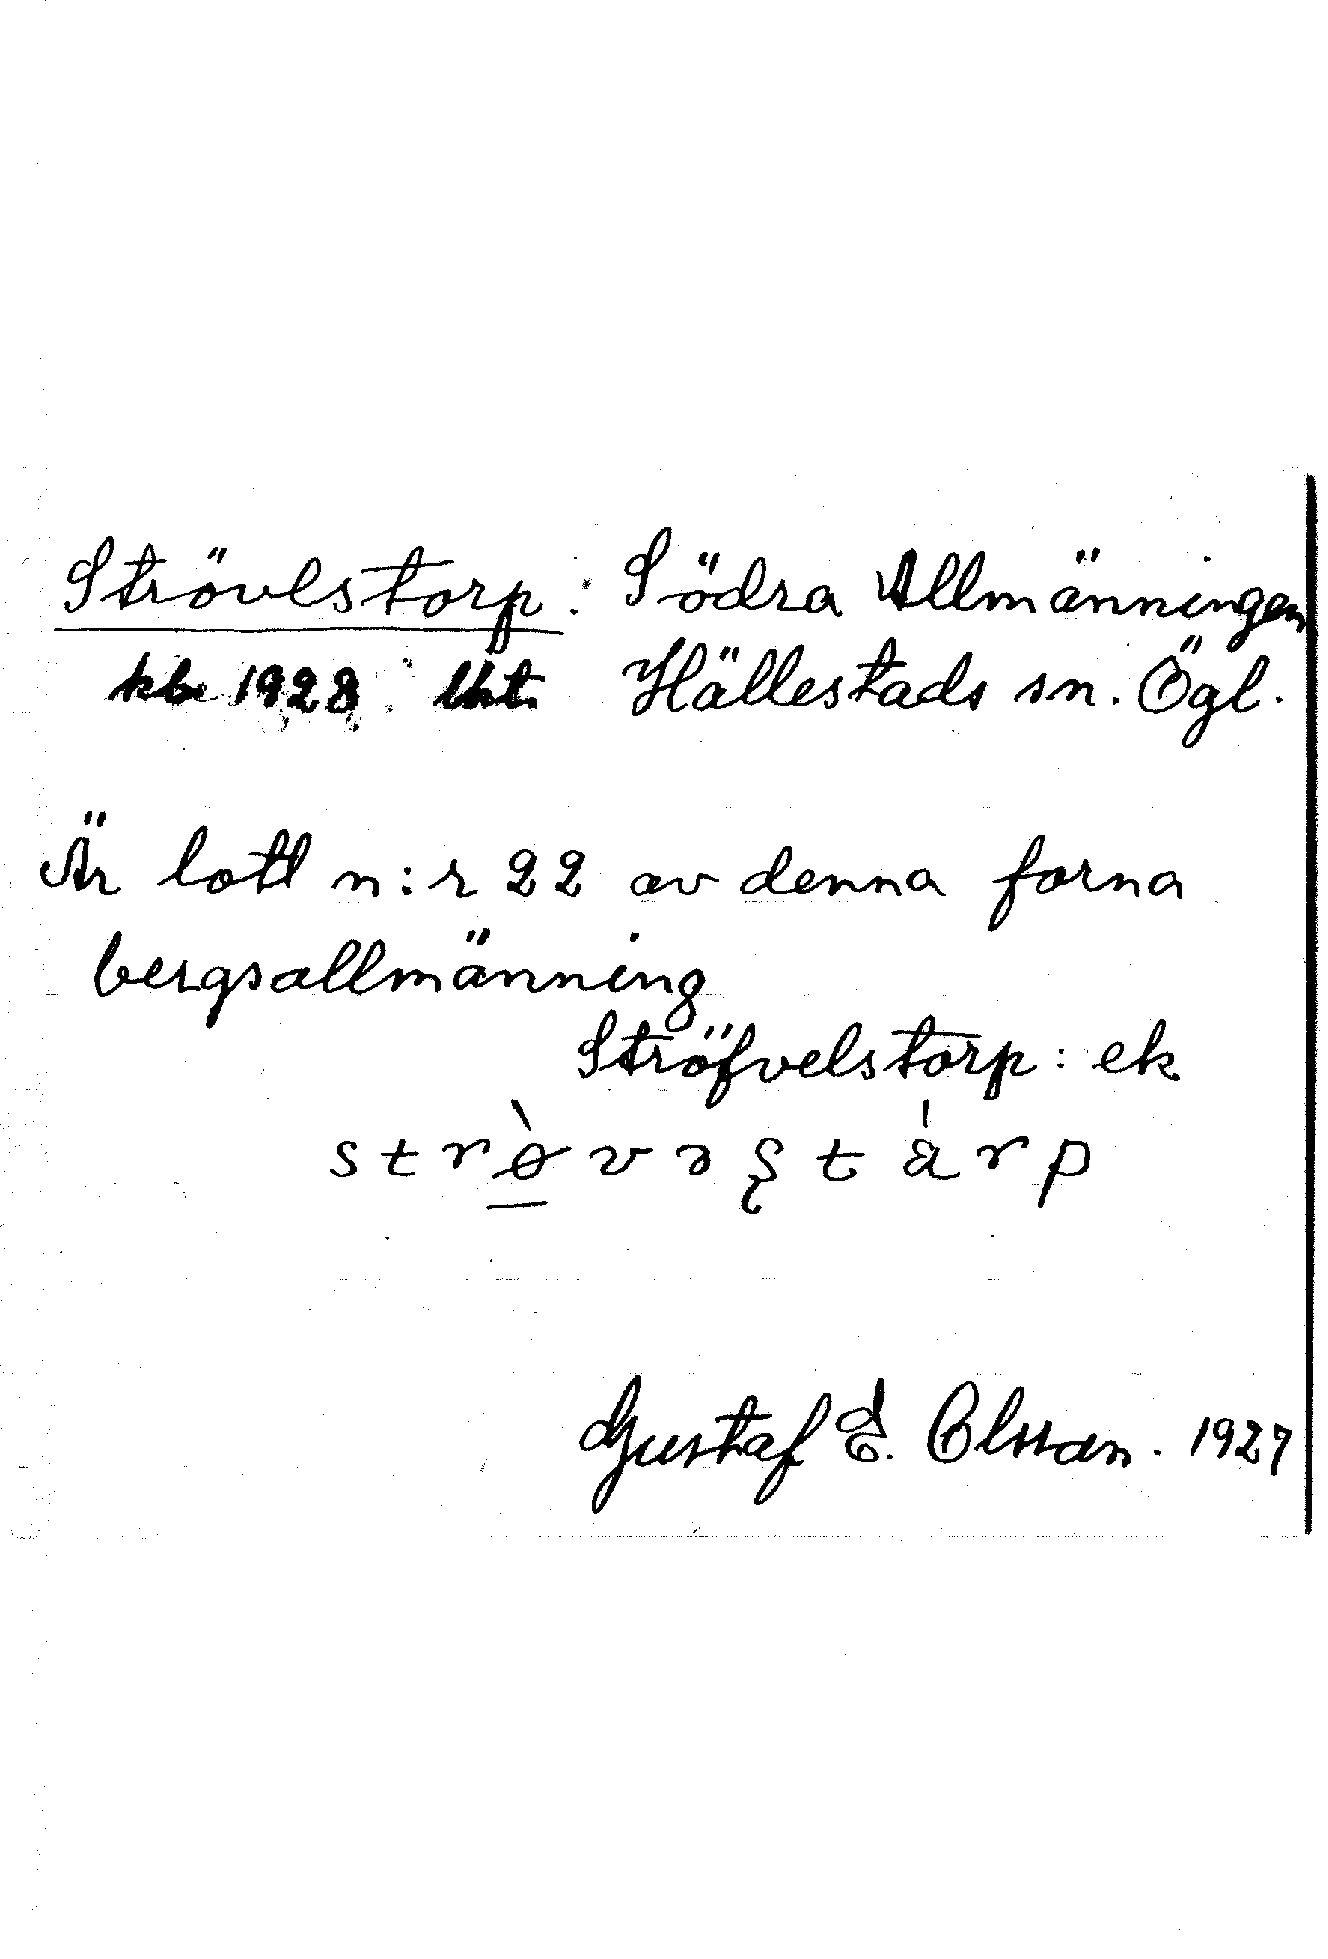 Strövlstorp: Södra Allmänningen
kb. 1928 lht. Hällestads sn. Ögl.
Är lott n:r 22 av denna forna
bergsallmänning
Ströfvelstorp: ek
strø̀vəştárp
Gustaf E. Olsson. 1927